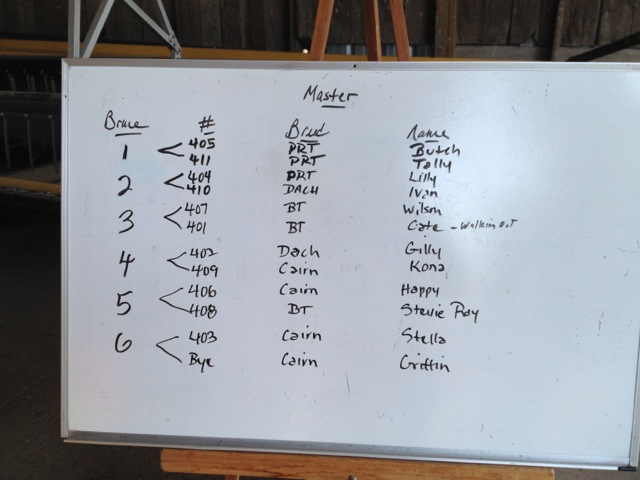 Master
Brace # Breed Name
1 405 PRT Butch
411 PRT Tally
2 404 PRT Lilly
410 DACH Ivan
3 407 BT Wilson
401 BT Cate - Walking out
4 402 Dach Gilly
409 Cairn Kona
5 406 Cairn Happy
408 BT Stevie Ray
6 403 Cairn Stella
Bye Cairn Griffin